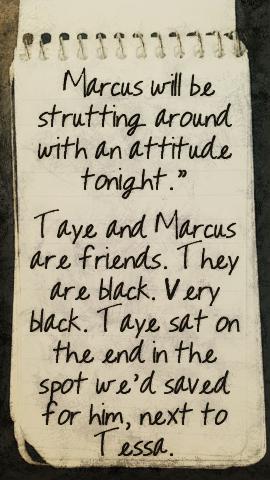 Marcus will be
strutting around
with an attitude
tonight."
Taye and Marcus
are friends. They
are black. Very
black. Taye sat on
the end in the
spot we'd saved
for him, next to
Tessa.